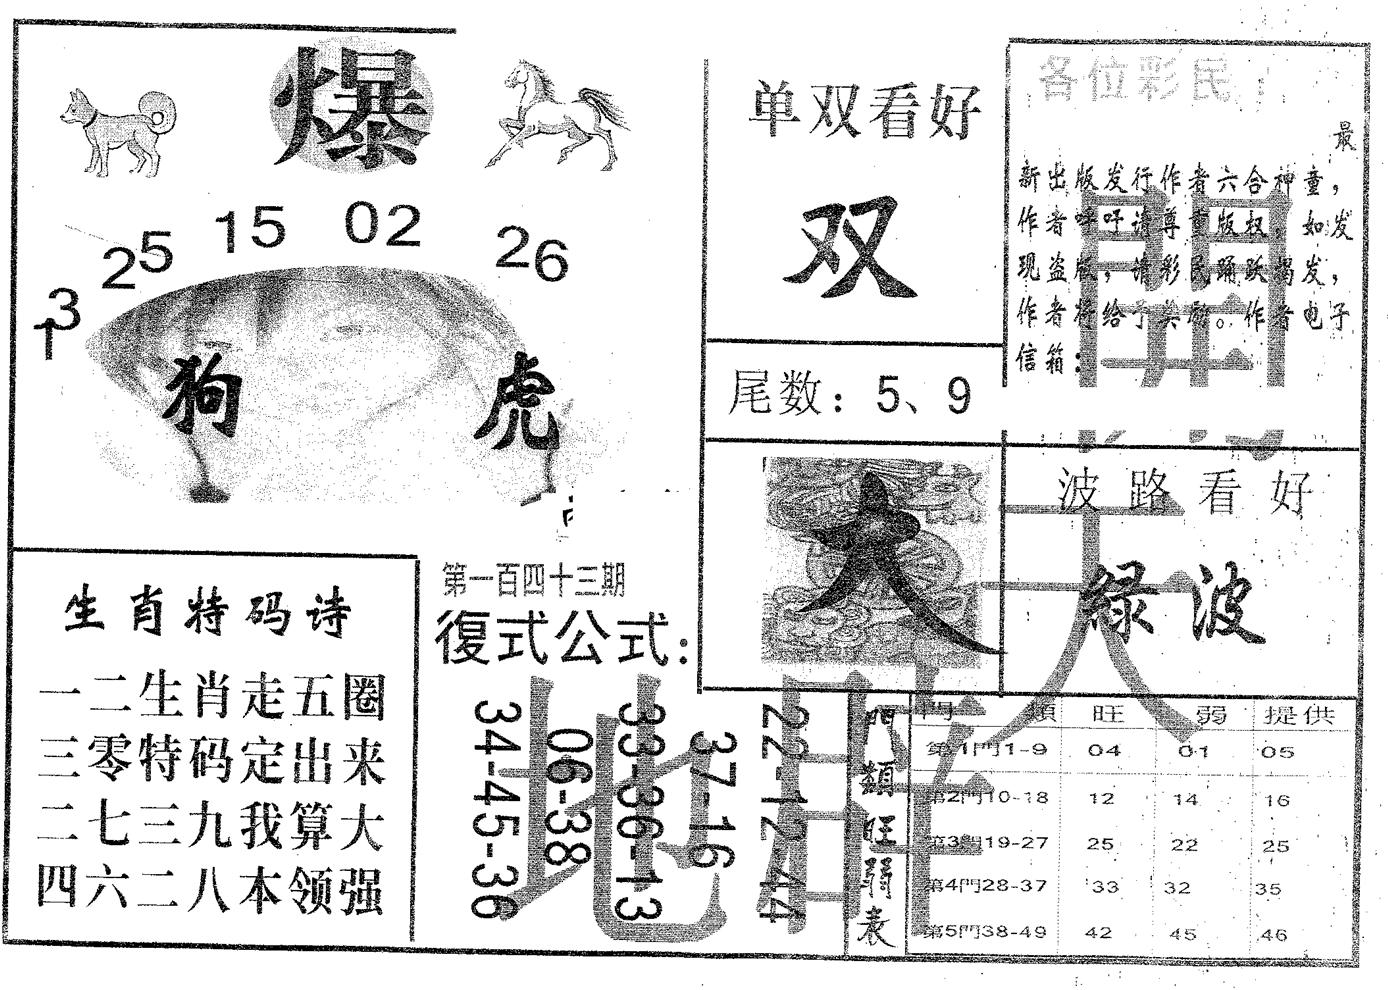 爆
15 02
25 26
31
狗 虎
单双看好
双
尾数：5、9
各位彩民：
最
新出版发行作者六合神童，
作者呼吁请尊重版权，如发
现盗版，请彩民踊跃揭发，
作者将给予奖励。作者电子
信箱：
大
波路看好
緑波
生肖特码诗
一二生肖走五圈
三零特码定出来
二七三九我算大
四六二八本领强
第一百四十三期
復式公式：
34-45-36
06-38
33-36-13
37-16
22-12-44
門類旺弱表
門 類 旺 弱 提供
第1門1-9 04 01 05
第2門10-18 12 14 16
第3門19-27 25 22 25
第4門28-37 33 32 35
第5門38-49 42 45 46